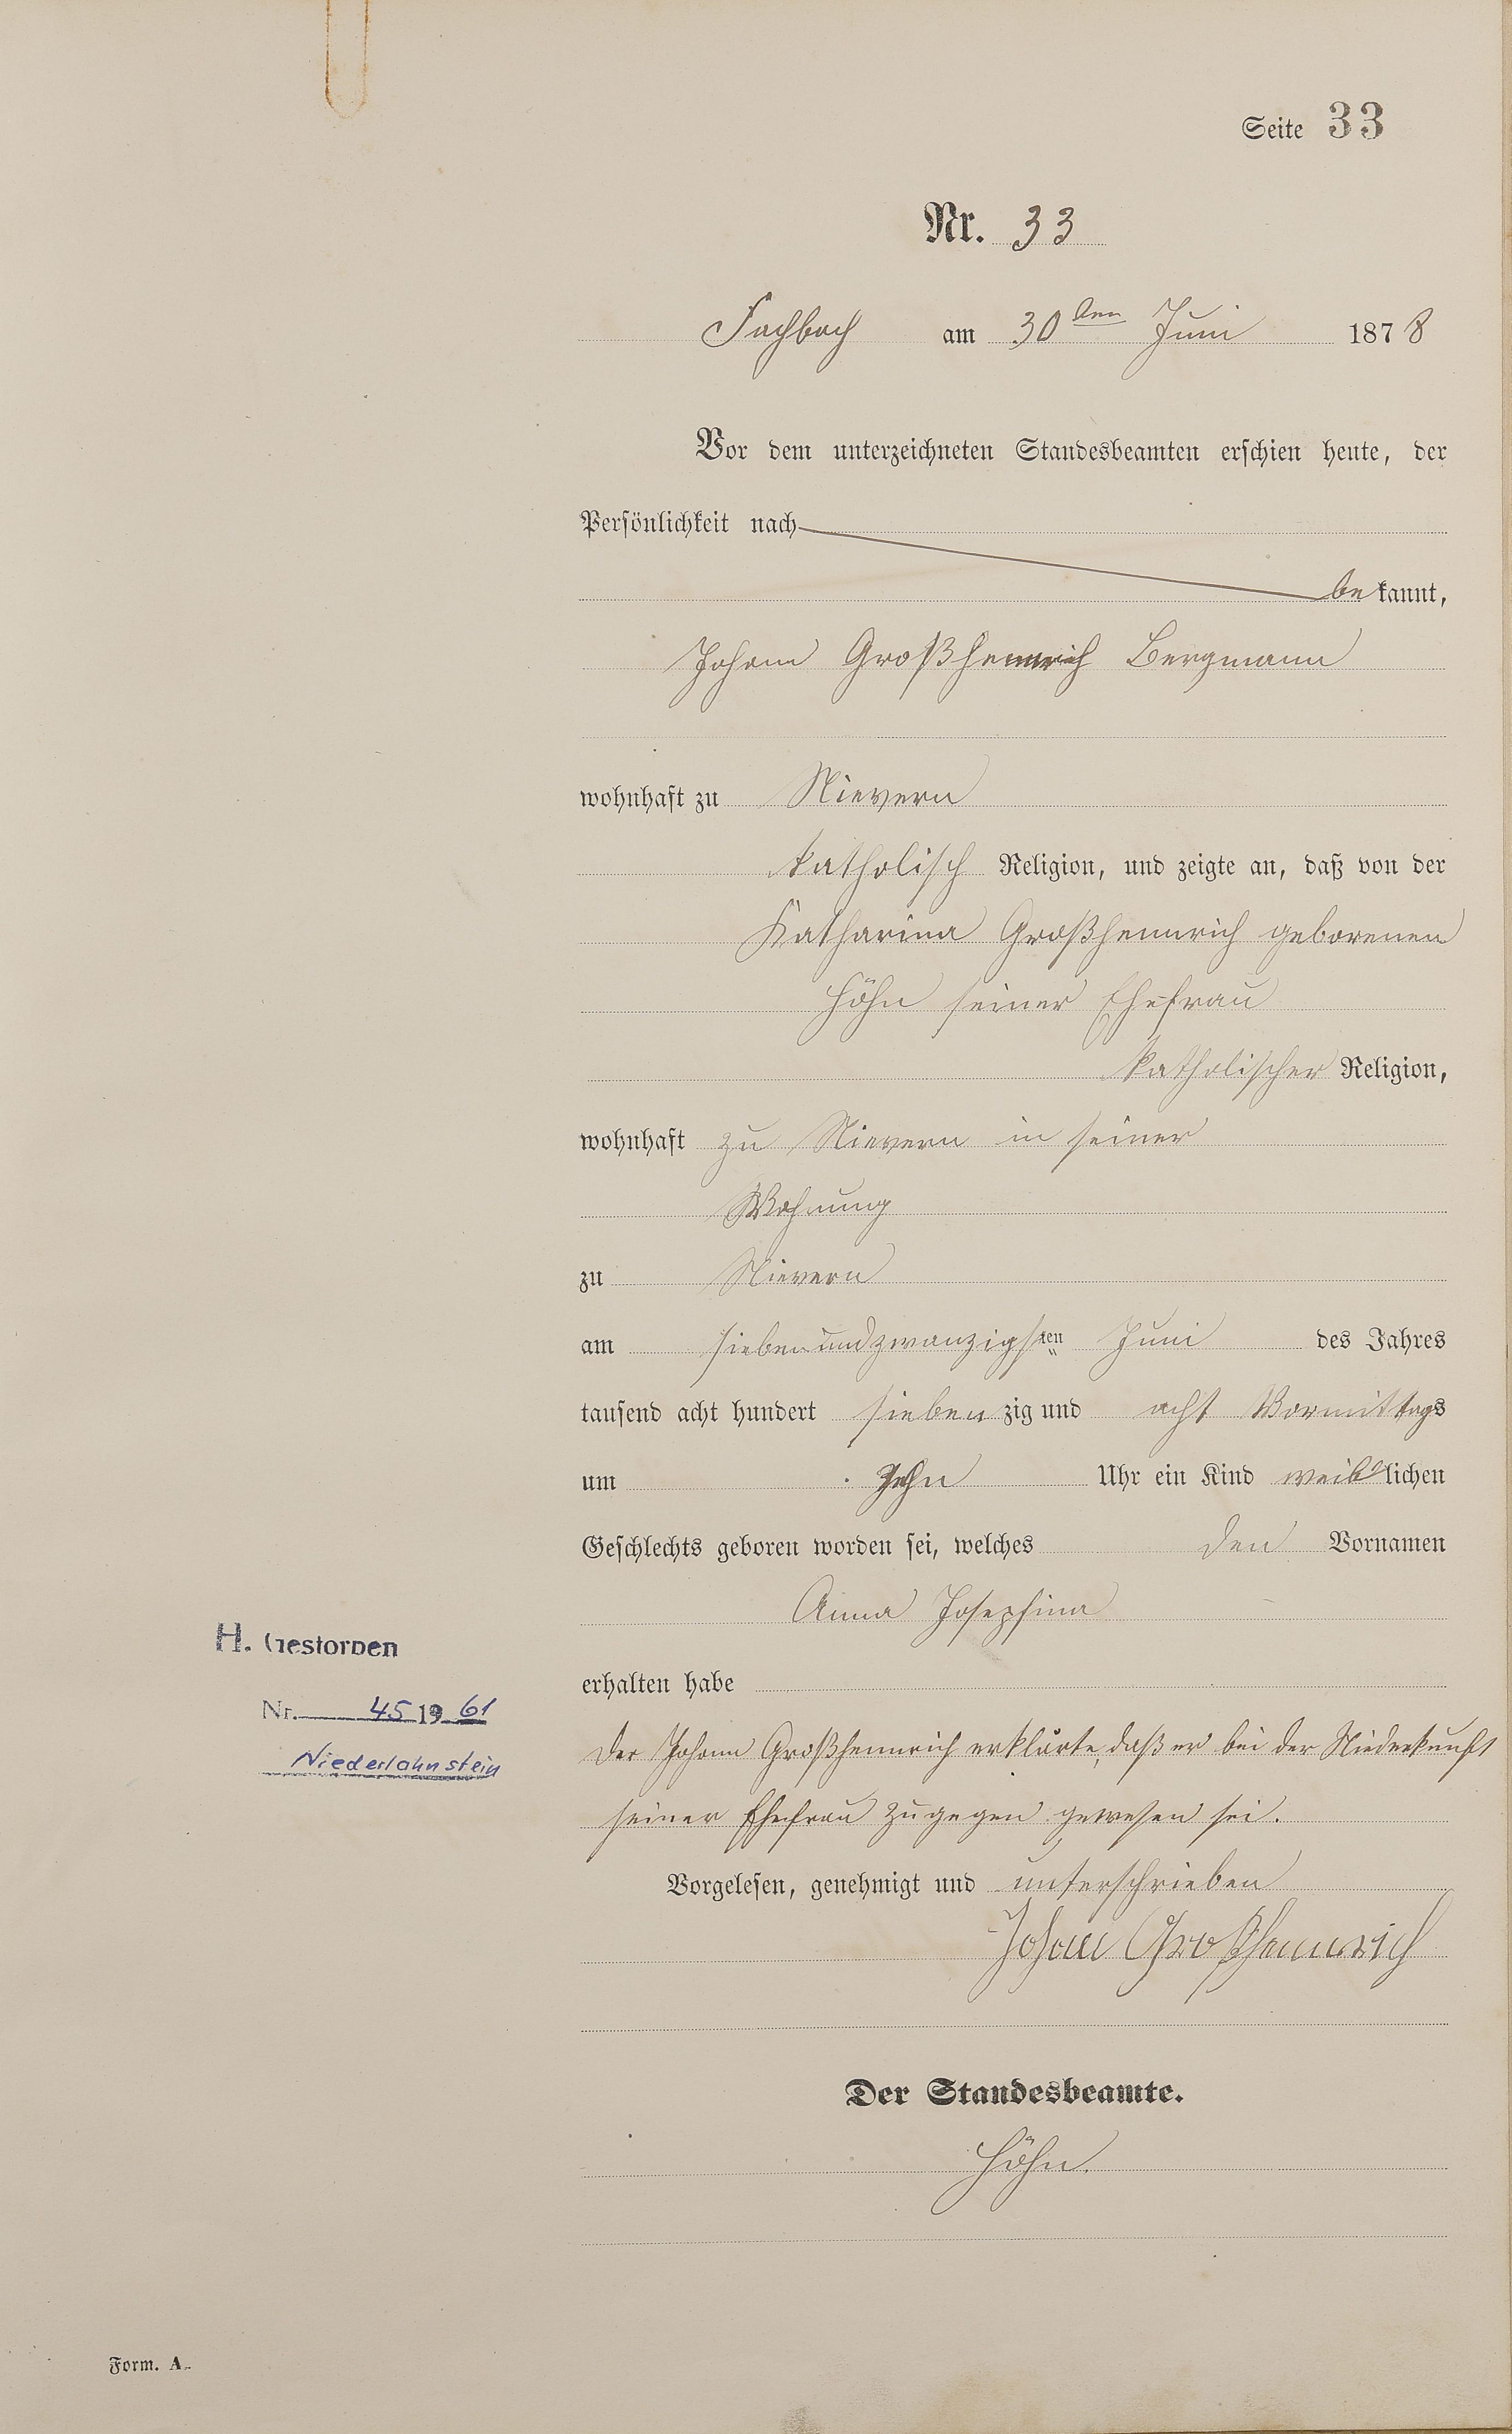 Seite 33
Nr. 33
Fachbach am 30ten Juni 1878
Vor dem unterzeichneten Standesbeamten erschien heute, der
Persönlichkeit nach
bekannt,
Johann Großhennrich Bergmann
wohnhaft zu Nievern
katholisch Religion, und zeigte an, daß von der
Katharina Großhennrich geborenen
Höhn seiner Ehefrau
katholischer Religion,
wohnhaft zu Nievern in seiner
Wohnung
zu Nievern
am siebenundzwanzigsten Juni des Jahres
tausend acht hundert siebenzig und acht Vormittags
um zehn Uhr ein Kind weiblichen
Geschlechts geboren worden sei, welches den Vornamen
Anna Josephina
erhalten habe
Der Johann Großhennrich erklärte, daß er bei der Niederkunft
seiner Ehefrau zugegen gewesen sei.
Vorgelesen, genehmigt und unterschrieben
Johann Großhennrich
Der Standesbeamte.
Höhn.
H. Gestorben
Nr. 45 1961
Niederlahnstein
Form. A.